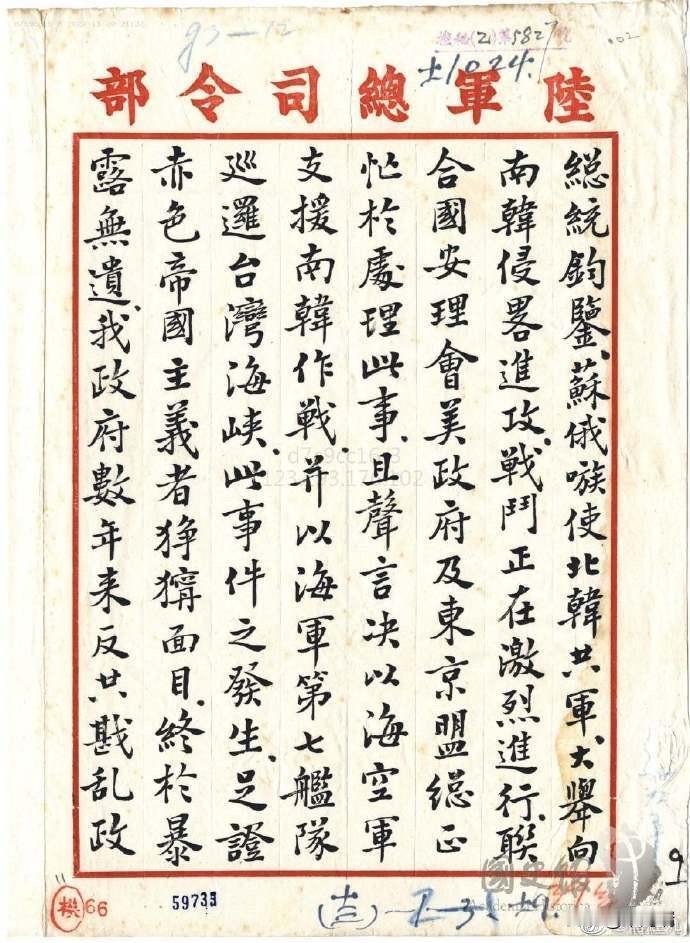 陸軍總司令部
總統鈞鑒、蘇俄嗾使北韓共軍、大舉向
南韓侵畧進攻、戰鬥正在激烈進行、聯
合國安理會美政府及東京盟總正
忙於處理此事、且聲言決以海空軍
支援南韓作戰、并以海軍第七艦隊
巡邏台灣海峽、此事件之發生、足證
赤色帝國主義者猙獰面目、終於暴
露無遺、我政府數年來反共戡乱政
59735
機66